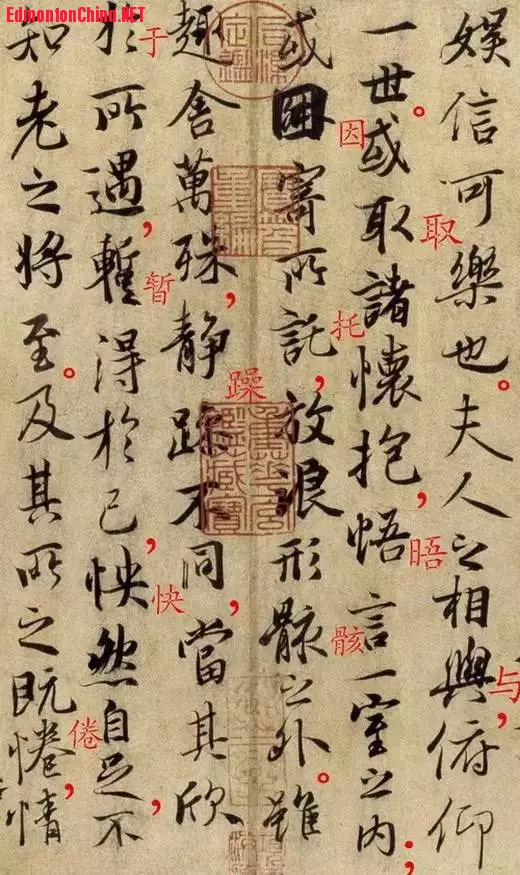 EdmontonChina.NET
娱信可樂也。夫人之相與，俯仰
与
一世。或取諸懷抱，悟言一室之内；
取
晤
或因寄所託，放浪形骸之外。雖
因
托
骸
趣舍萬殊，静躁不同，當其欣
躁
於所遇，暫得於己，怏然自足，不
于
暂
快
知老之将至。及其所之既惓，情
倦